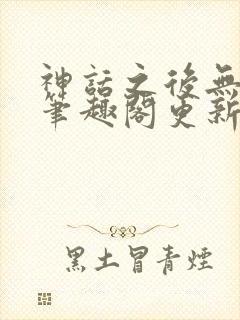 神話之後無
筆趣閣更新
黑土冒青煙